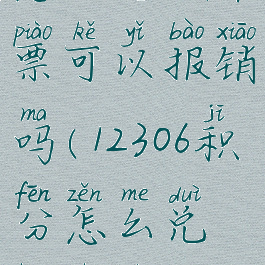 piào kě yǐ bào xiāo
票可以报销
ma jī
吗(12306积
fēn zěn me duì
分怎么兑